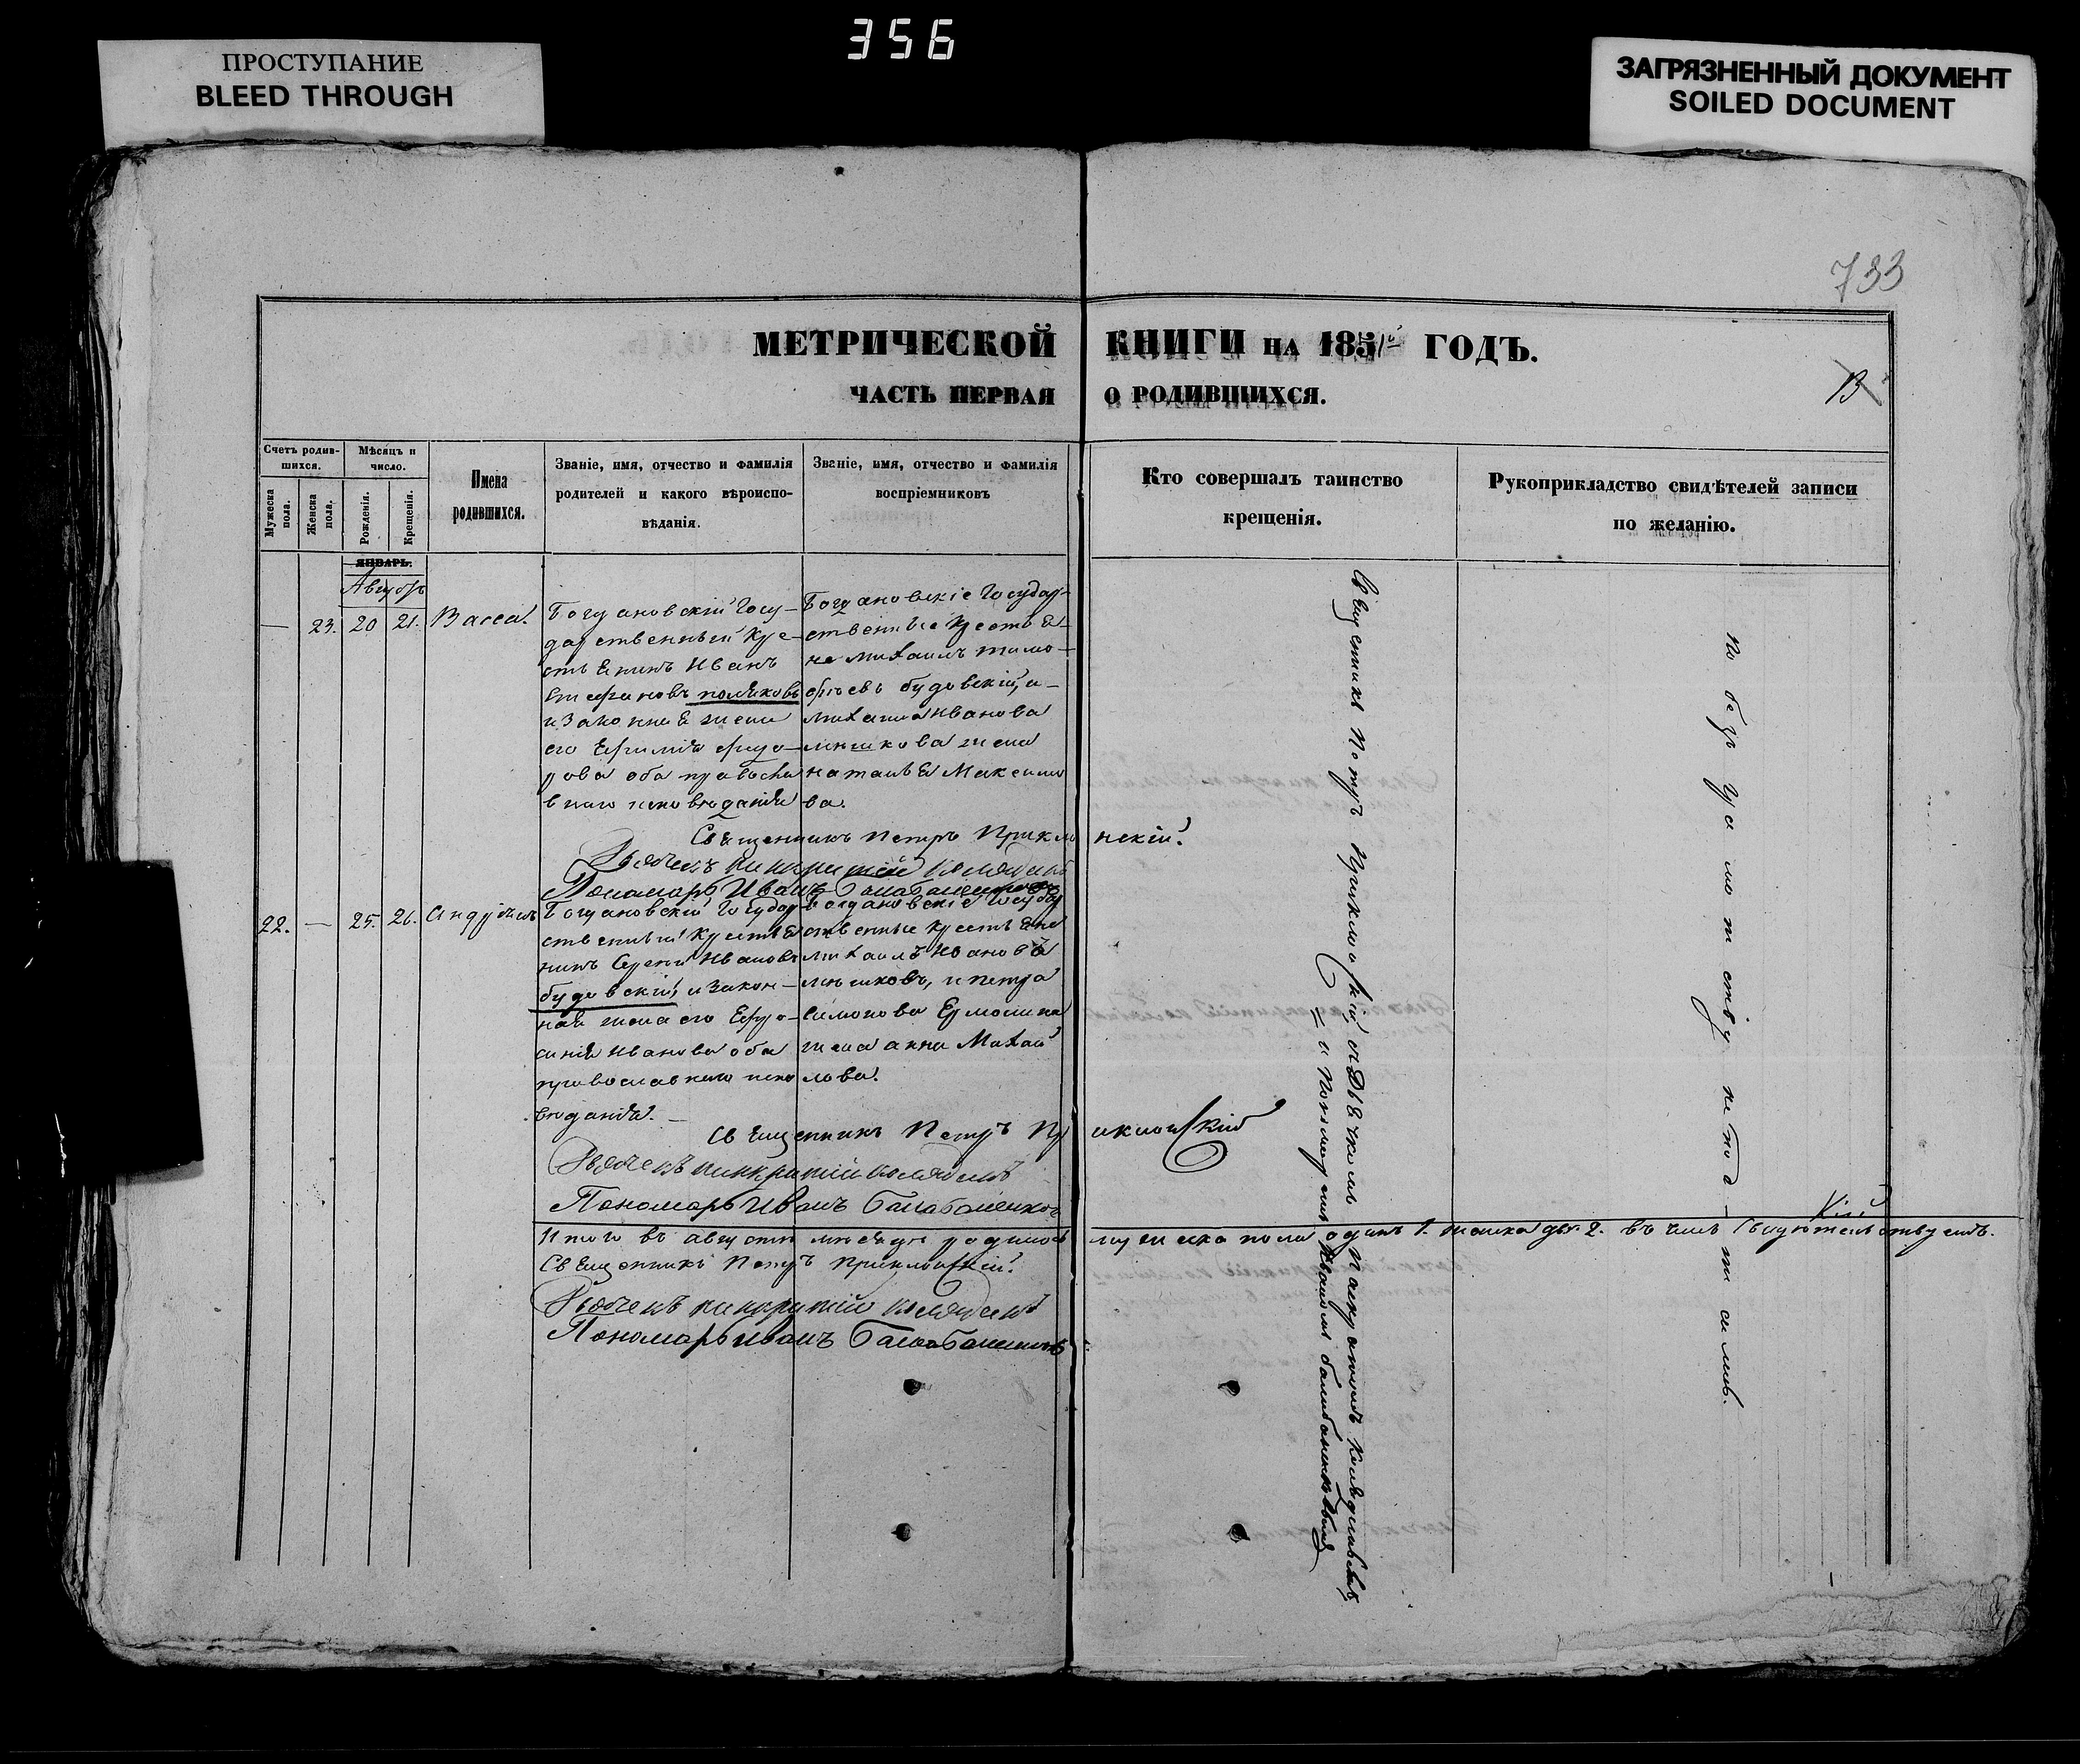 356
ПРОСТУПАНИЕ
BLEED THROUGH
ЗАГРЯЗНЕННЫЙ ДОКУМЕНТ
SOILED DOCUMENT
733
МЕТРИЧЕСКОЙ КНИГИ НА 1851го ГОДЪ.
ЧАСТЬ ПЕРВАЯ О РОДИВШИХСЯ.
13
Счетъ родившихся.
Мужеска пола.
Женска пола.
Мѣсяцъ и число.
Рожденія.
Крещенія.
Имена родившихся.
Званіе, имя, отчество и фамилія
родителей и какого вѣроиспо-
вѣданія.
Званіе, имя, отчество и фамилія
воспріемниковъ
Кто совершалъ таинство
крещенія.
Рукоприкладство свидѣтелей записи
по желанію.
ЯНВАРЬ.
Августъ
— 23. 20 21. Васса.
Богдановскій Госу-
дарственный Кре-
стьянинъ Иванъ
поляковъ
и законная жена
его Ефимія Фидо-
рова оба православ
наго исповѣданія
Богдановскіе Государ-
ственные Крестья-
не Михаилъ Тимо-
фѣевъ будовскій, и
Михаила Иванова
жена
Наталья Максимо
ва.
Священникъ Петръ Приклонскій.
Дьячекъ панкратій
Пономарь Иванъ
22. — 25. 26. Андріянъ
Богдановскій Государ
ственный Крестья
нинъ Сергей Ивановъ
будовскій, и закон-
ная жена его Ефро-
синія Иванова оба
православнаго испо
вѣданія.
Богдановскіе Государ
ственные Крестьяне
Михаилъ Ивановъ
и Петра
Симонова
жена анна Михай
лова.
Священникъ Петръ Приклонскій
Дьячекъ панкратій
Пономарь Иванъ Балабаненковъ
Итого въ августѣ мѣсяцѣ родилось мужеска пола одинъ 1. женска двѣ 2. въ чемъ свидѣтельствуемъ.
Священникъ Петръ Приклонскій.
Дьячекъ панкратій
Пономарь Иванъ Балабаненковъ
Священникъ Петръ Приклонскій съ Дьячкомъ Панкратіемъ
и Пономаремъ Иваномъ
По безграмотству не подписались.